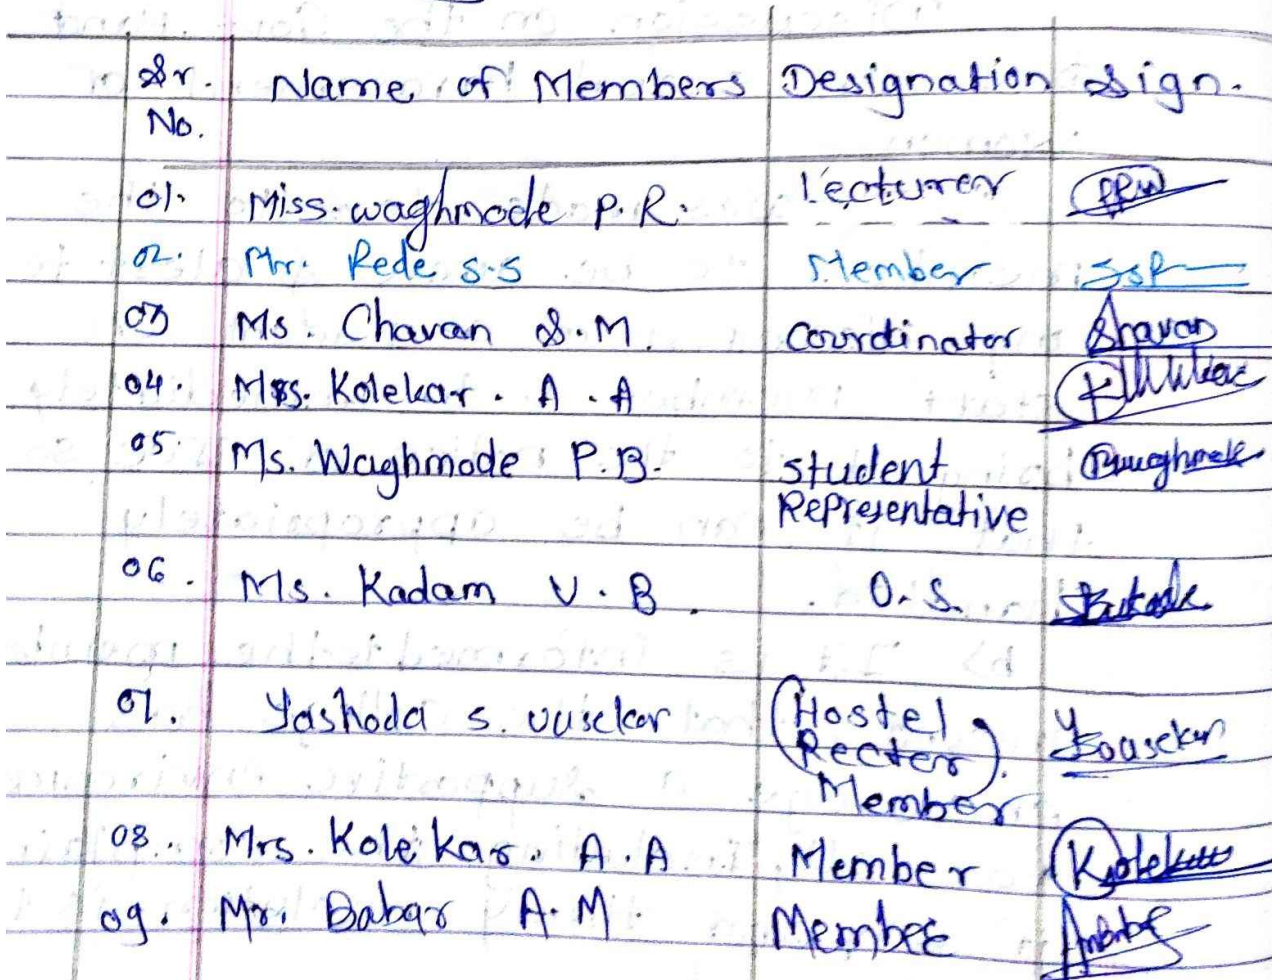 Sr. Name of Members Designation Sign.
No.
01. Miss. Waghmode P. R. Lecturer PRW
02. Mr. Rede S.S Member SSR
03 Ms. Chavan S.M. Courdinator Shavan
04. Mrs. Kolekar. A. A
05. Ms. Waghmode P.B. Student
Representative
06. Ms. Kadam V. B. O. S.
07. Yashoda S. Uusekar (Hostel
Recter).
Member
08. Mrs. Kolekar. A. A Member
09. Mr. Babar A. M. Member